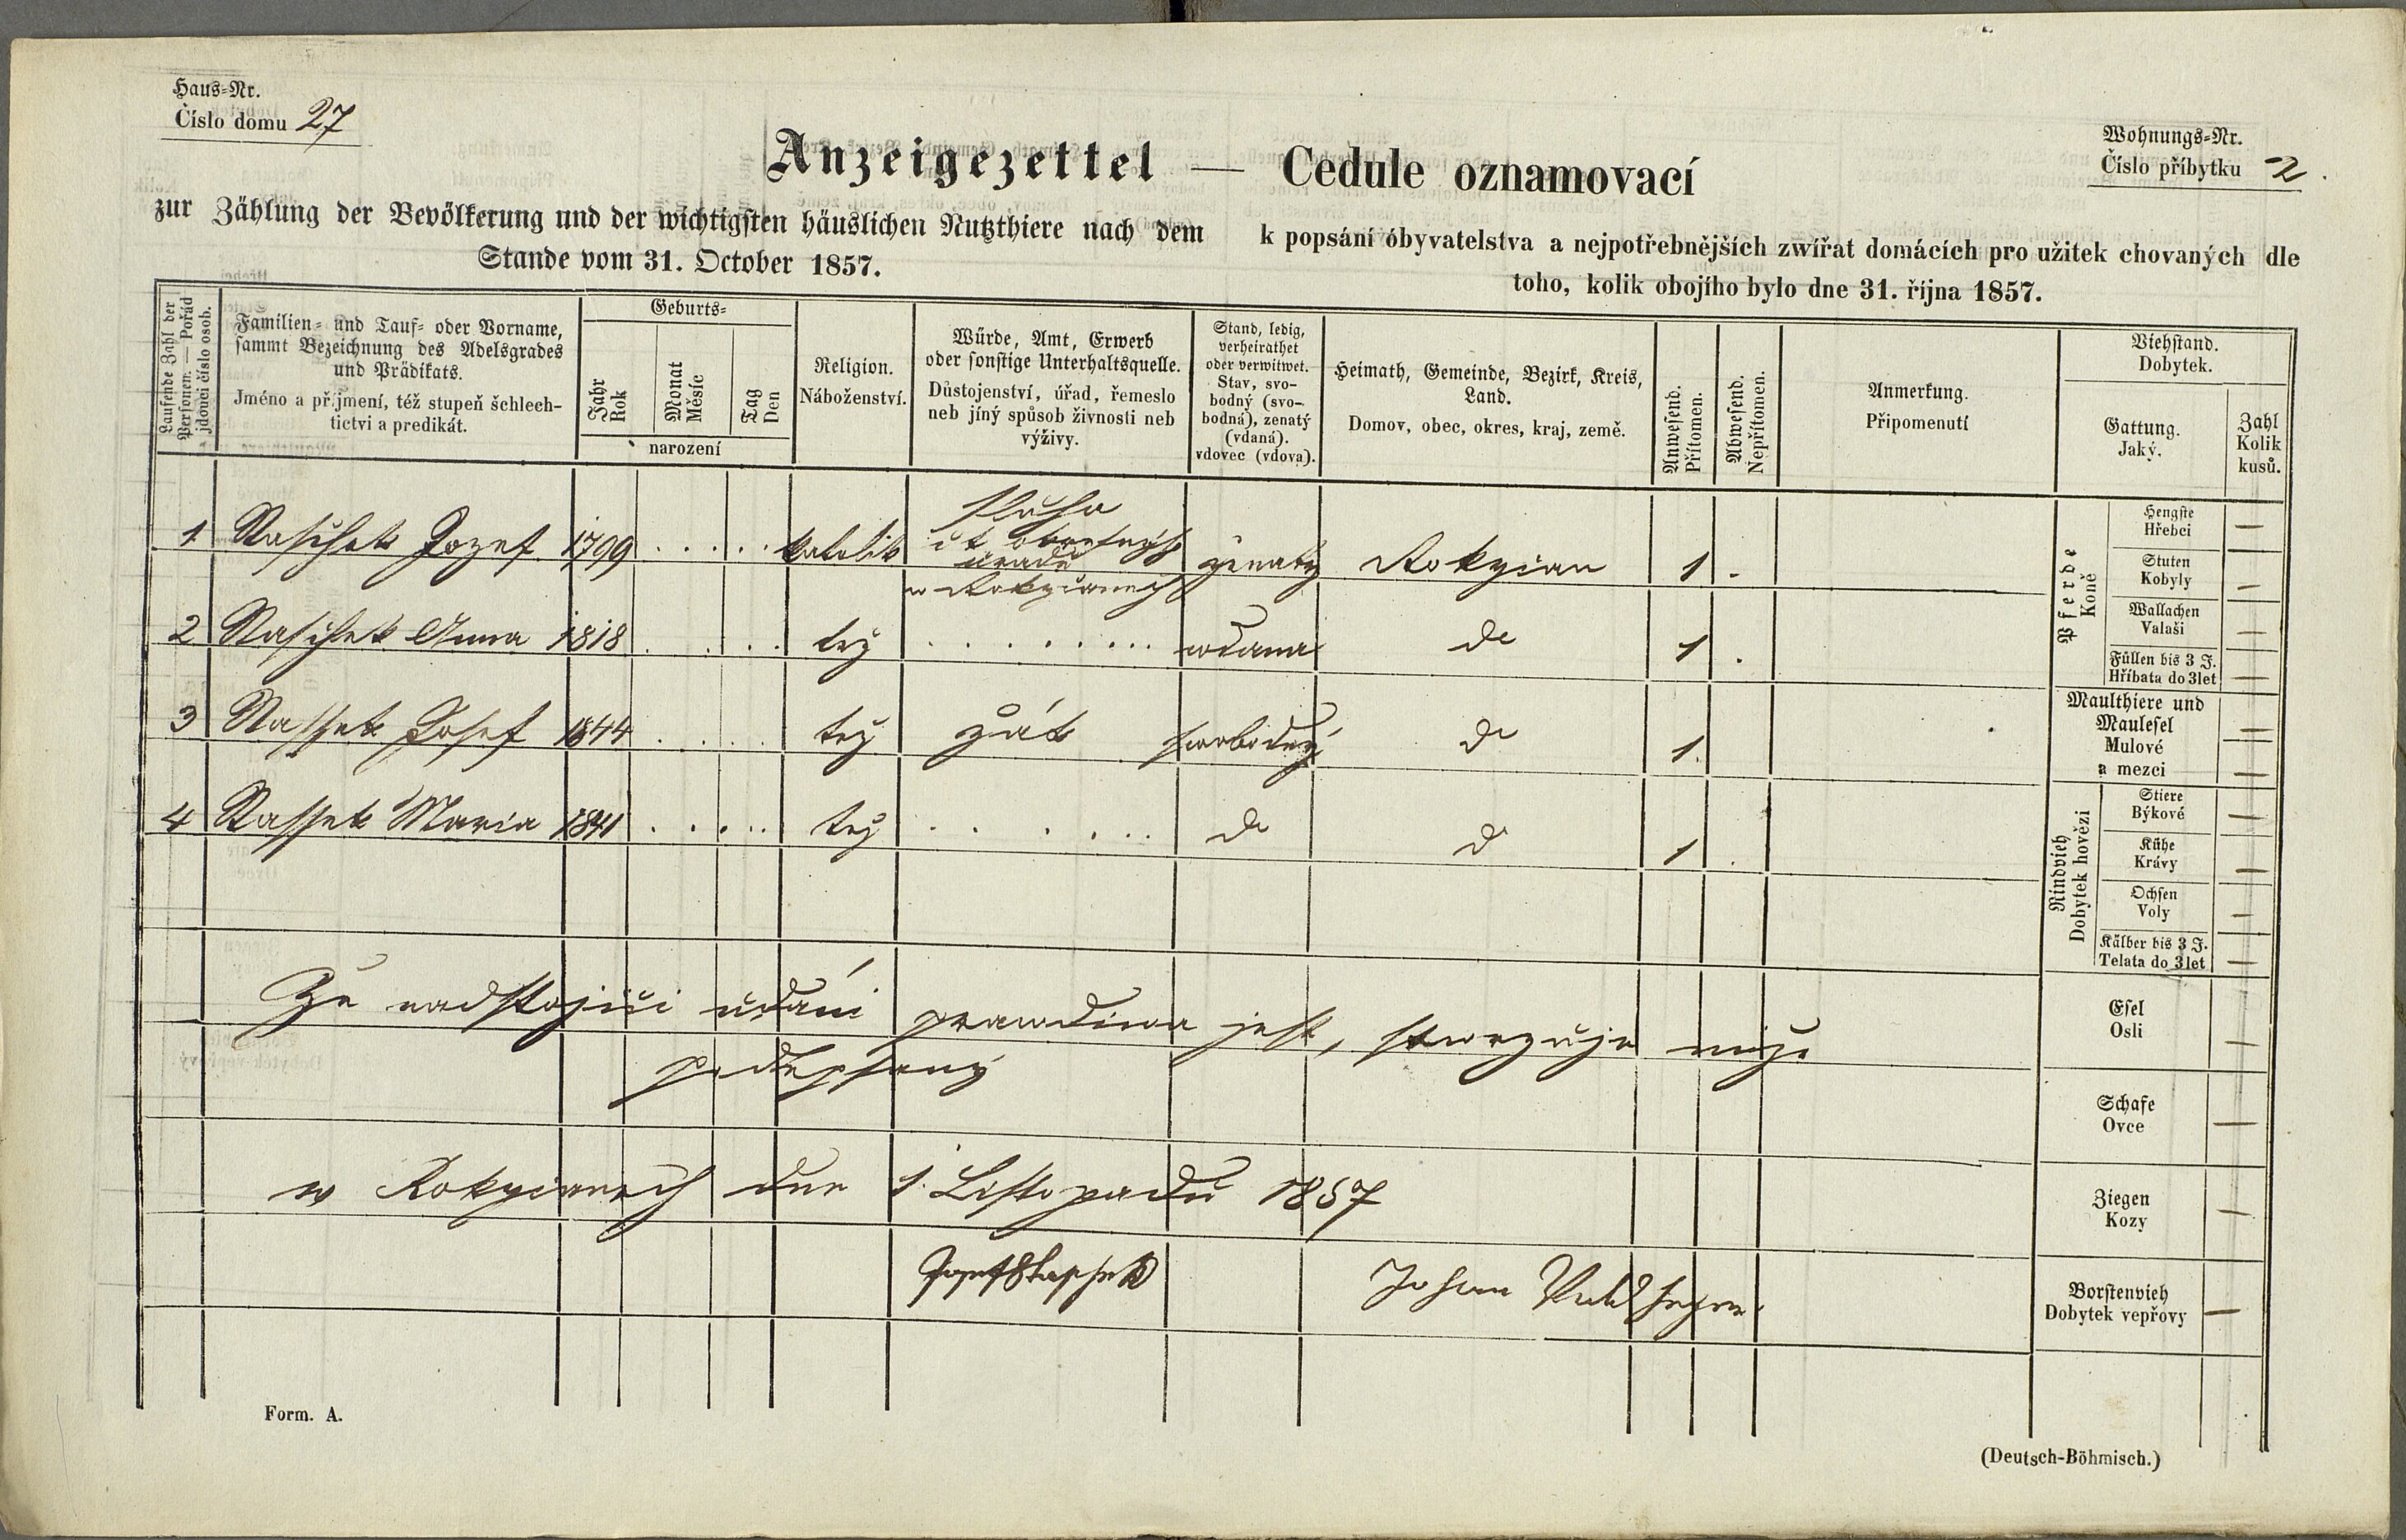 Haus-Nr.
Číslo domu 27
Wohnungs-Nr.
Číslo příbytku 2
Anzeigezettel — Cedule oznamovací
zur Zählung der Bevölkerung und der wichtigsten häuslichen Nutzthiere nach dem
Stande vom 31. October 1857.
k popsání óbyvatelstva a nejpotřebnějších zwířat domácích pro užitek chovaných dle
toho, kolik obojího bylo dne 31. října 1857.
Laufende Zahl der
Personen. — Pořád
jdoucí číslo osob.
Familien- und Tauf- oder Vorname,
sammt Bezeichnung des Adelsgrades
und Prädikats.
Jméno a příjmení, též stupeň šchlech-
tictvi a predikát.
Geburts-
Jahr
Rok
Monat
Měsíc
Tag
Den
narození
Religion.
Náboženství.
Würde, Amt, Erwerb
oder sonstige Unterhaltsquelle.
Důstojenství, úřad, řemeslo
neb jíný spůsob živnosti neb
výživy.
Stand, ledig,
verheirathet
oder verwitwet.
Stav, svo-
bodný (svo-
bodná), zenatý
(vdaná).
vdovec (vdova).
Heimath, Gemeinde, Bezirk, Kreis,
Land.
Domov, obec, okres, kraj, země.
Anwesend.
Přítomen.
Abwesend.
Nepřítomen.
Anmerkung.
Připomenutí
Viehstand.
Dobytek.
Gattung.
Jaký.
Zahl
Kolik
kusů.
1 Josef 1799 . . . . . katolik sluha
úřadu
w Rokycanech ženatý Rokycan 1 .
2 Anna 1818 . . . . tež . . . . . . . . . wdana do 1 .
3 Josef 1844 . . . . tež žák swobodný do 1.
4 Maria 1841 . . . . . tež . . . . . . do do 1 .
Že nadstojící udání prawdiwa jest, stwrzuje níže
podepsaný
w Rokycanech dne 1. Listopadu 1857
Josef
Johan
Pferde
Koně
Hengste
Hřebci —
Stuten
Kobyly —
Wallachen
Valaši —
Füllen bis 3 J.
Hříbata do 3 let —
Maulthiere und
Maulesel —
Mulové
a mezci —
Rindvieh
Dobytek hovězi
Stiere
Býkové —
Kühe
Krávy —
Ochsen
Voly —
Kälber bis 3 J.
Telata do 3 let —
Esel
Osli —
Schafe
Ovce —
Ziegen
Kozy —
Borstenvieh
Dobytek vepřovy —
Form. A.
(Deutsch-Böhmisch.)